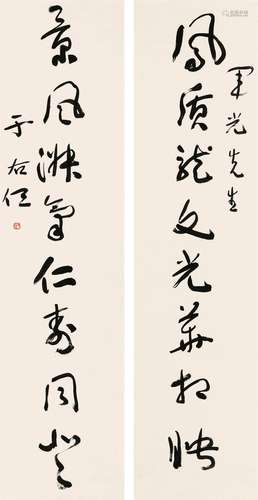 鳳質龍文光華相映
軍光先生
景風淑氣仁壽同登
于右任